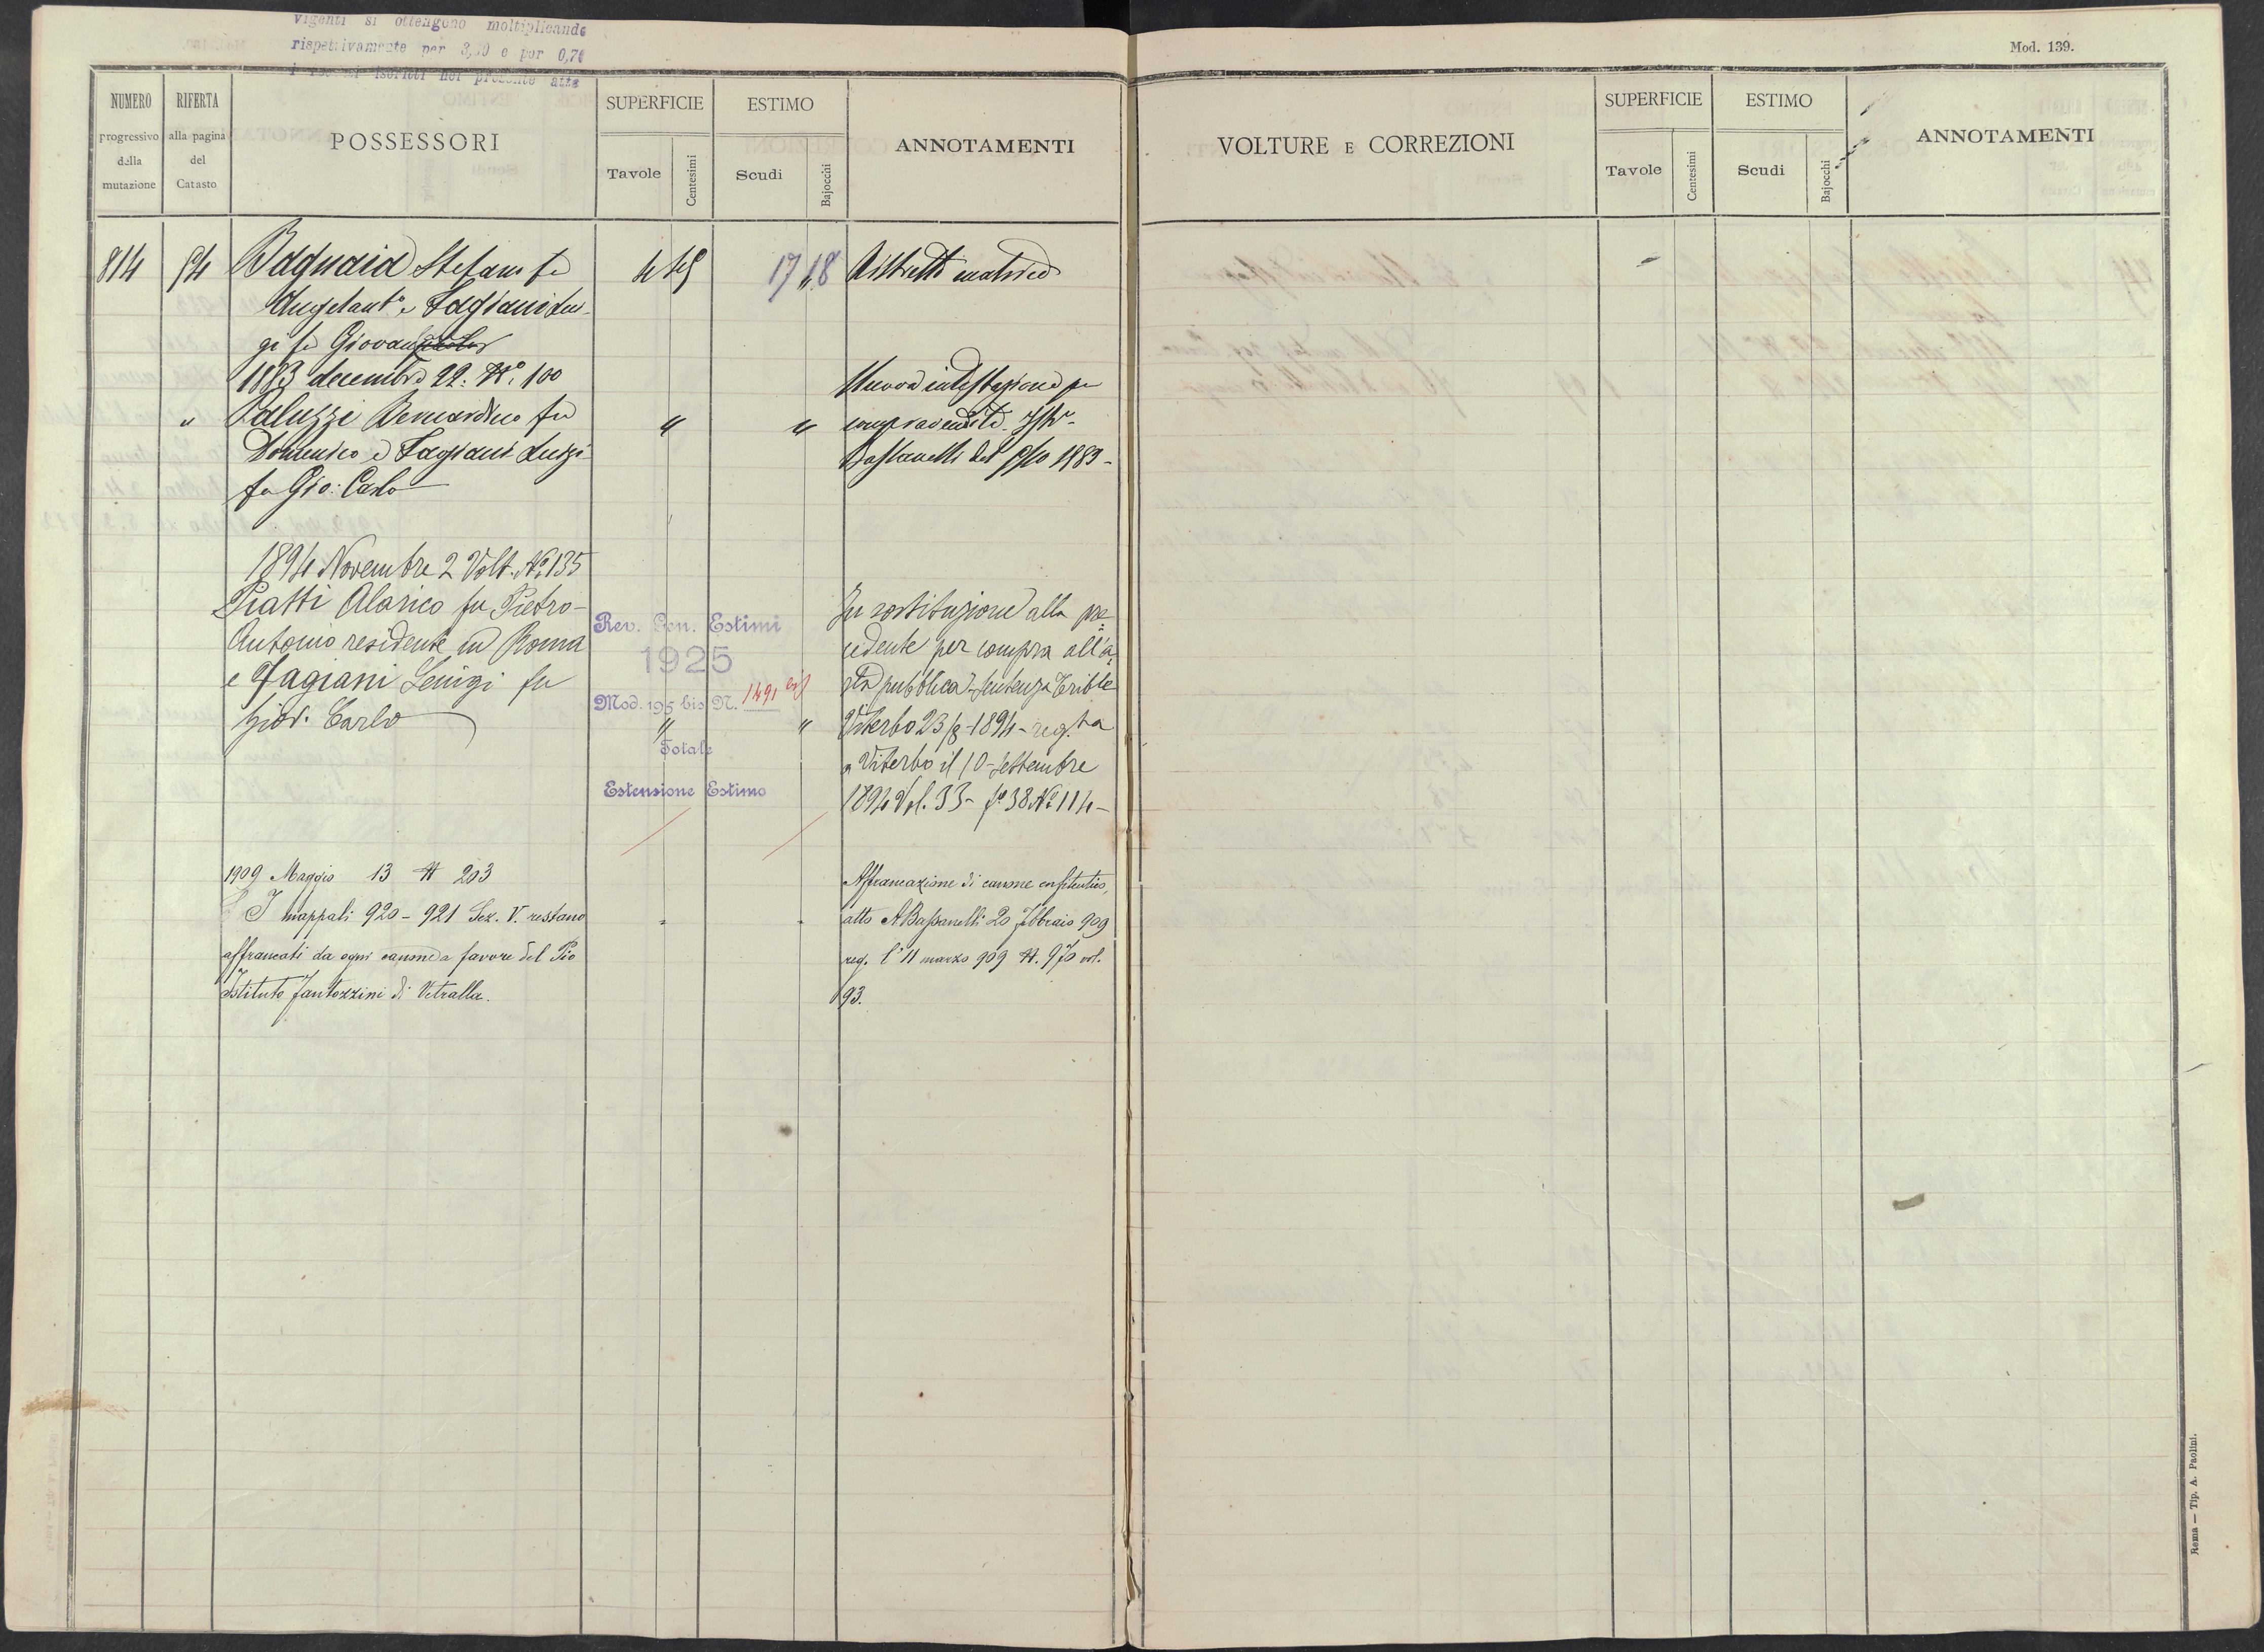 Vigenti si ottengono moltiplicando
rispettivamente per e per 0,70
iscritti nel presente atto
Mod. 139.
NUMERO progressivo della mutazione
RIFERTA alla pagina del Catasto
POSSESSORI
SUPERFICIE
Tavole
Centesimi
ESTIMO
Scudi
Bajocchi
ANNOTAMENTI
VOLTURE E CORREZIONI
SUPERFICIE
Tavole
Centesimi
ESTIMO
Scudi
Bajocchi
ANNOTAMENTI
814 Bagnaia Stefano fu 17 18 Ristretto matrice
Angelant° e Fagiani Lui-
gi fu Giovan
1883 decembre 22. N° 100 Nuova intestazione per
" Paluzzi Bernardino fu " " compravendita Istr°
Domenico e Fagiani Luigi Bassanelli del 1883-
fu Gio: Carlo
1894 Novembre 2 Volt. N° 135
Piatti Alarico fu Pietro- In sostituzione alla pre
Antonio residente in Roma cedente per compra all'a
e Fagiani Luigi fu sta pubblica - Sentenza Trible
Giov. Carlo " " Viterbo 23/8-1894-reg.ta
a Viterbo il 10-settembre
1894 Vol. 33- f° 38 N° 114-
Rev. Gen. Estimi
1925
Mod. 195 bis N. 1491 bis
Totale
Estensione Estimo
1909 Maggio 13 N 203 Affrancazione di canone enfiteutico,
I mappali 920-921 Sez. V. restano - - atto A Bassanelli 20 febbraio 909
affrancati da ogni canone a favore del Pio reg. l'11 marzo 909 N. 970 vol.
Istituto Fantozzini di Vetralla. 93.
Roma — Tip. A. Paolini.